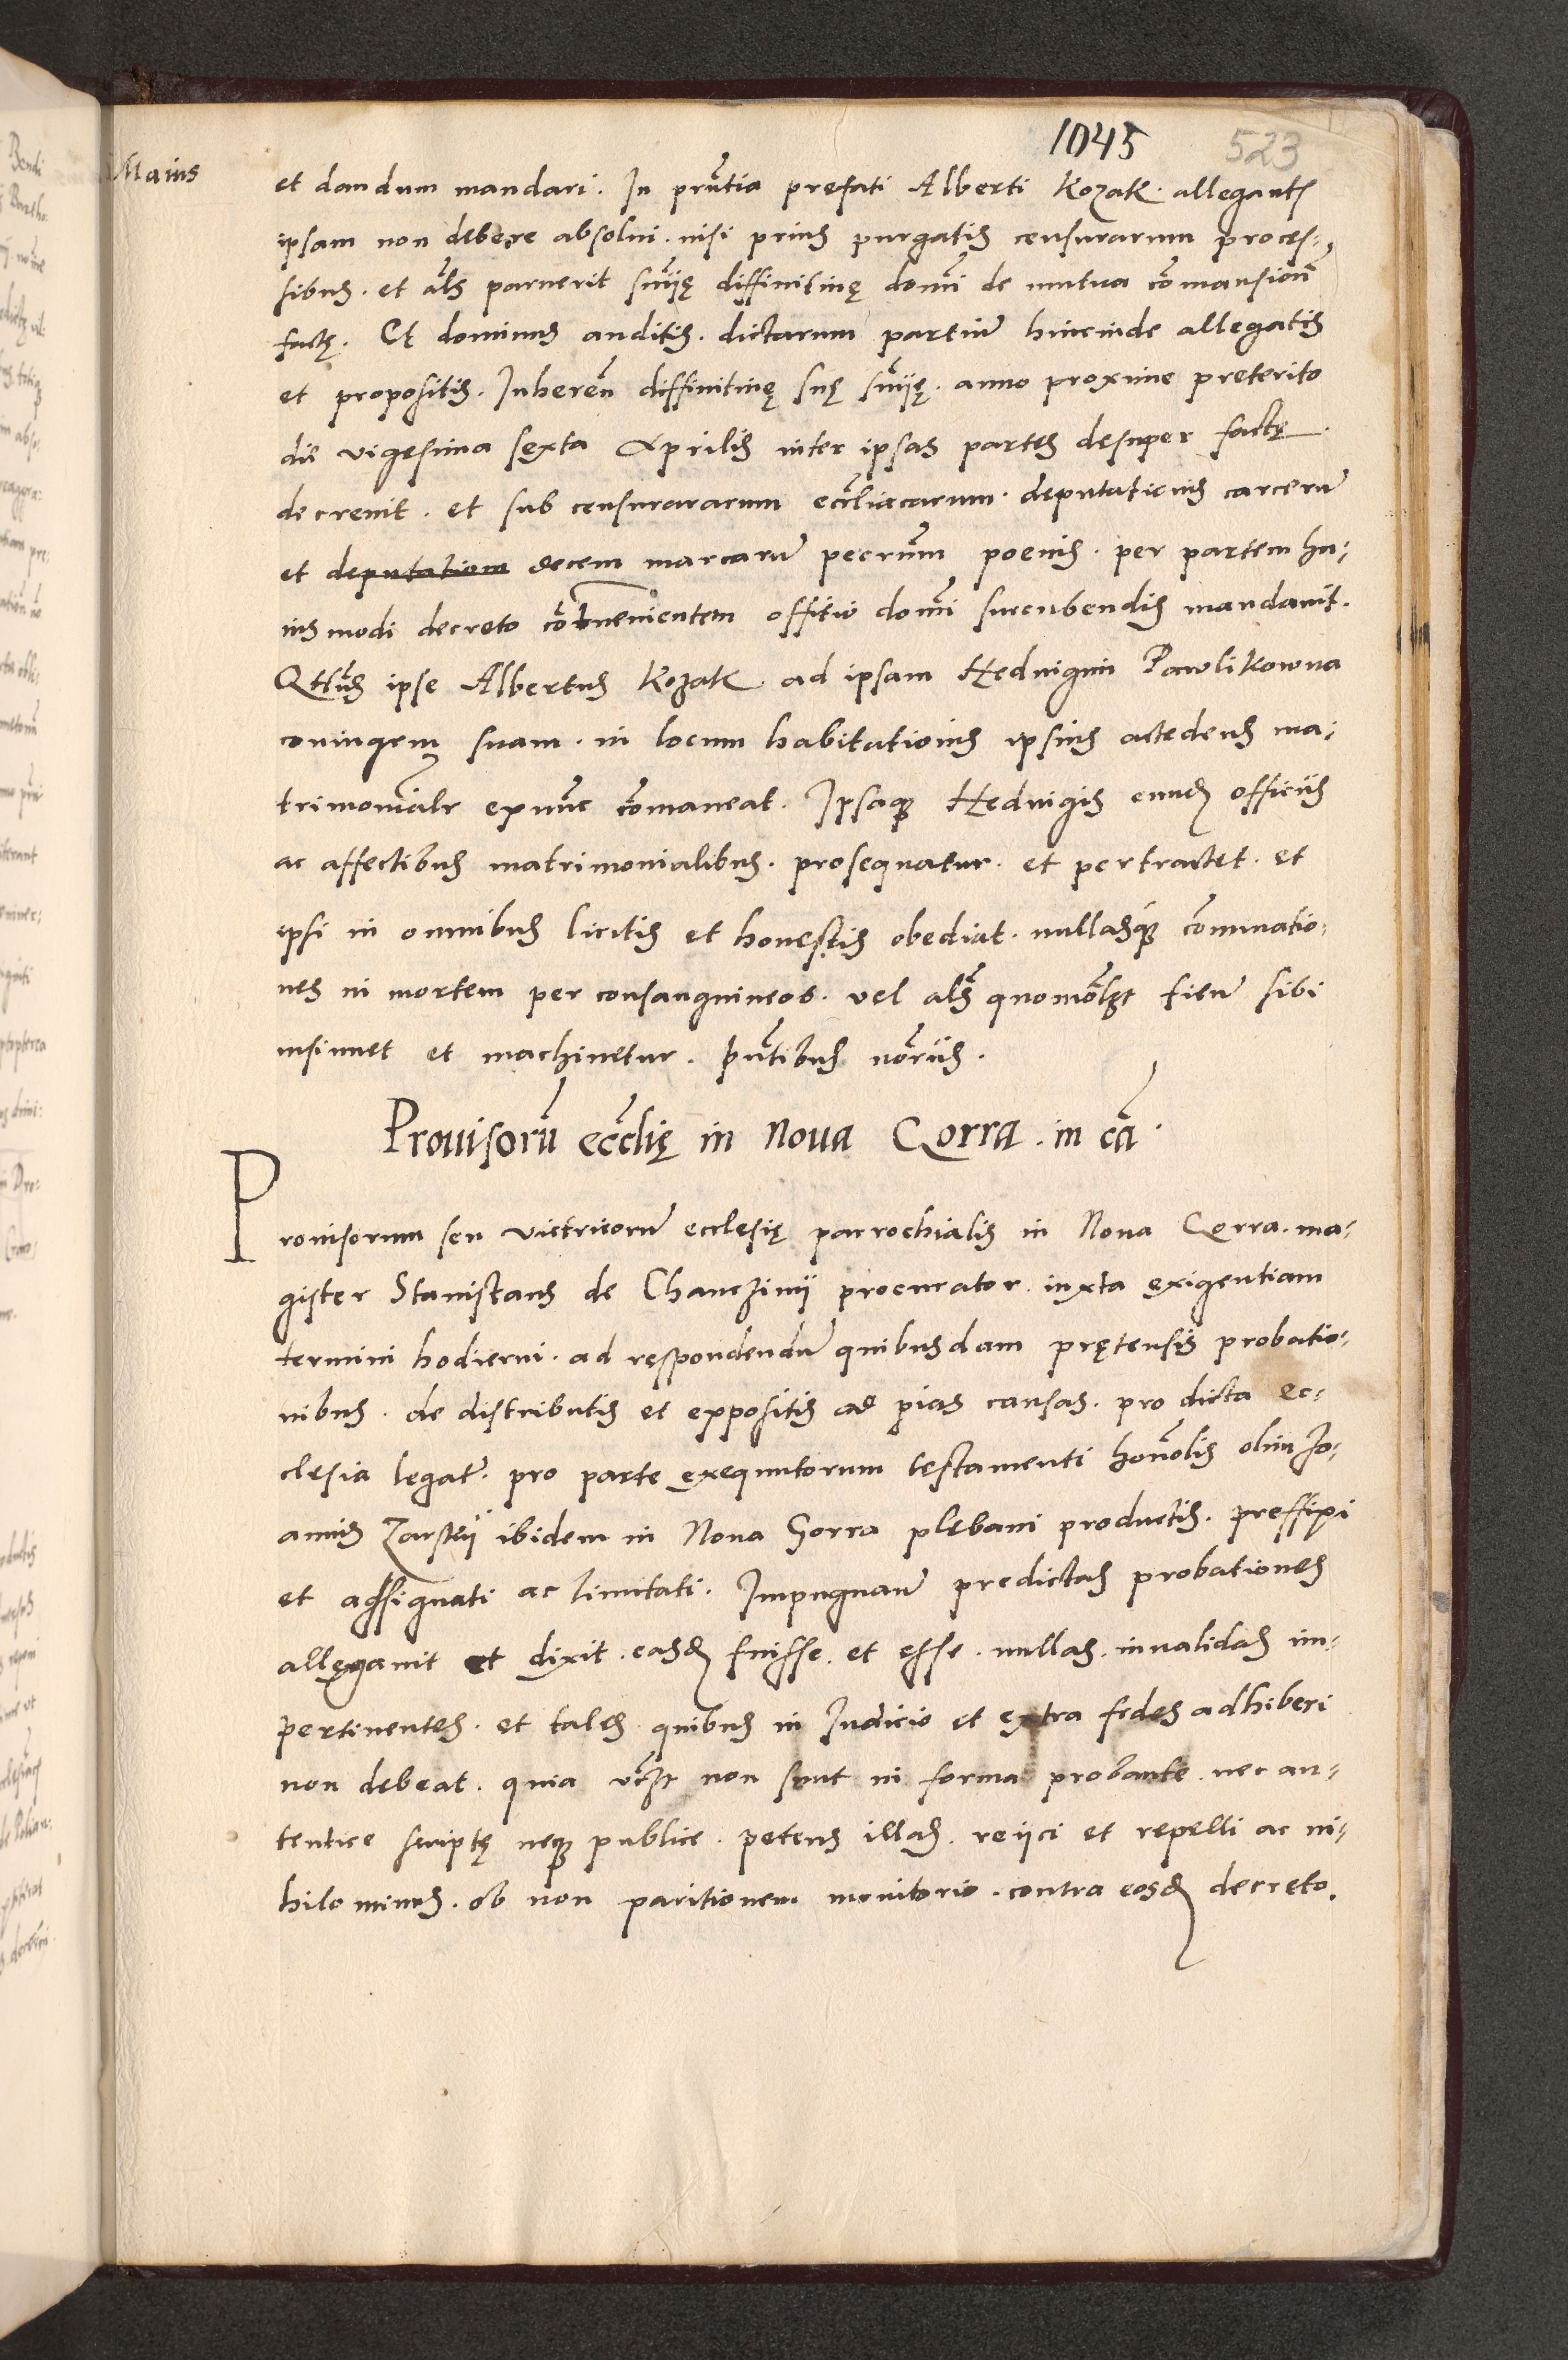 1045 523
Maius
et dandum mandari. In pr̃ntia prefati Alberti Kozak. allegantis
ipsam non debere absolui. nisi prius purgatis censurarum proces-
sibus. et als̃ paruerit sn̄ię diffinitiuę domĩ de mutua com̃ansionẽ
factę. Et dominus auditis. dictarum partiũ hincinde allegatis
et propositis. Inheren̄ diffinitiuę suę sn̄ię. anno proxime preterito
die vigesima sexta Aprilis inter ipsas partes desuper factę.
decreuit. et sub censurararum eccl̃iacarum. deputationis carcerũ
et deputationẽ decem marcarũ pecuñ poenis. per partem hu-
iusmodi decreto cõtrauenientem offitio domĩ succubendis mandauit.
Qtĩus ipse Albertus Kozak. ad ipsam Heduigim Pawlikowna
coniugem suam. in locum habitationis ipsius accedens ma-
trimonial̃r exnũc com̃aneat. Ipsaq; Heduigis eund; officiis
ac affectibus matrimonialibus. prosequatur. et pertractet. et
ipsi in omnibus licitis et honestis obediat. nullasq; com̃inatio-
nes in mortem per consanguineos. vel als̃ quomõlzt fieri sibi
insinuet et machinetur. pñtibus nõriis.
Prouisorũ eccĩię in Noua Gorra. in cã.
Prouisorum seu victricorũ ecclesię parrochialis in Noua Gorra. ma-
gister Stanislaus de Chanczinii procurator. iuxta exigentiam
termini hodierni. ad respondendũ quibusdam prętensis probatio-
nibus. de distributis et expositis ad pias causas. pro dicta ec-
clesia legat̃. pro parte exequutorum testamenti honõlis olim Jo-
annis ibidem in Noua Gorra plębani productis. preffixi
et assignati ac limitati. Impugnan̄ predictas probationes
allęgauit et dixit. easd; fuisse. et esse. nullas. inualidas im-
pertinentes. et tales. quibus in Iudicio et extra fides adhiberi
non debeat. quia vczt non sunt in forma probante. nec au-
tentice scriptę neq; publice. petens illas. reiici et repelli ac ni-
hilominus. ob non paritionem monitorio. contra eosd; decreto.